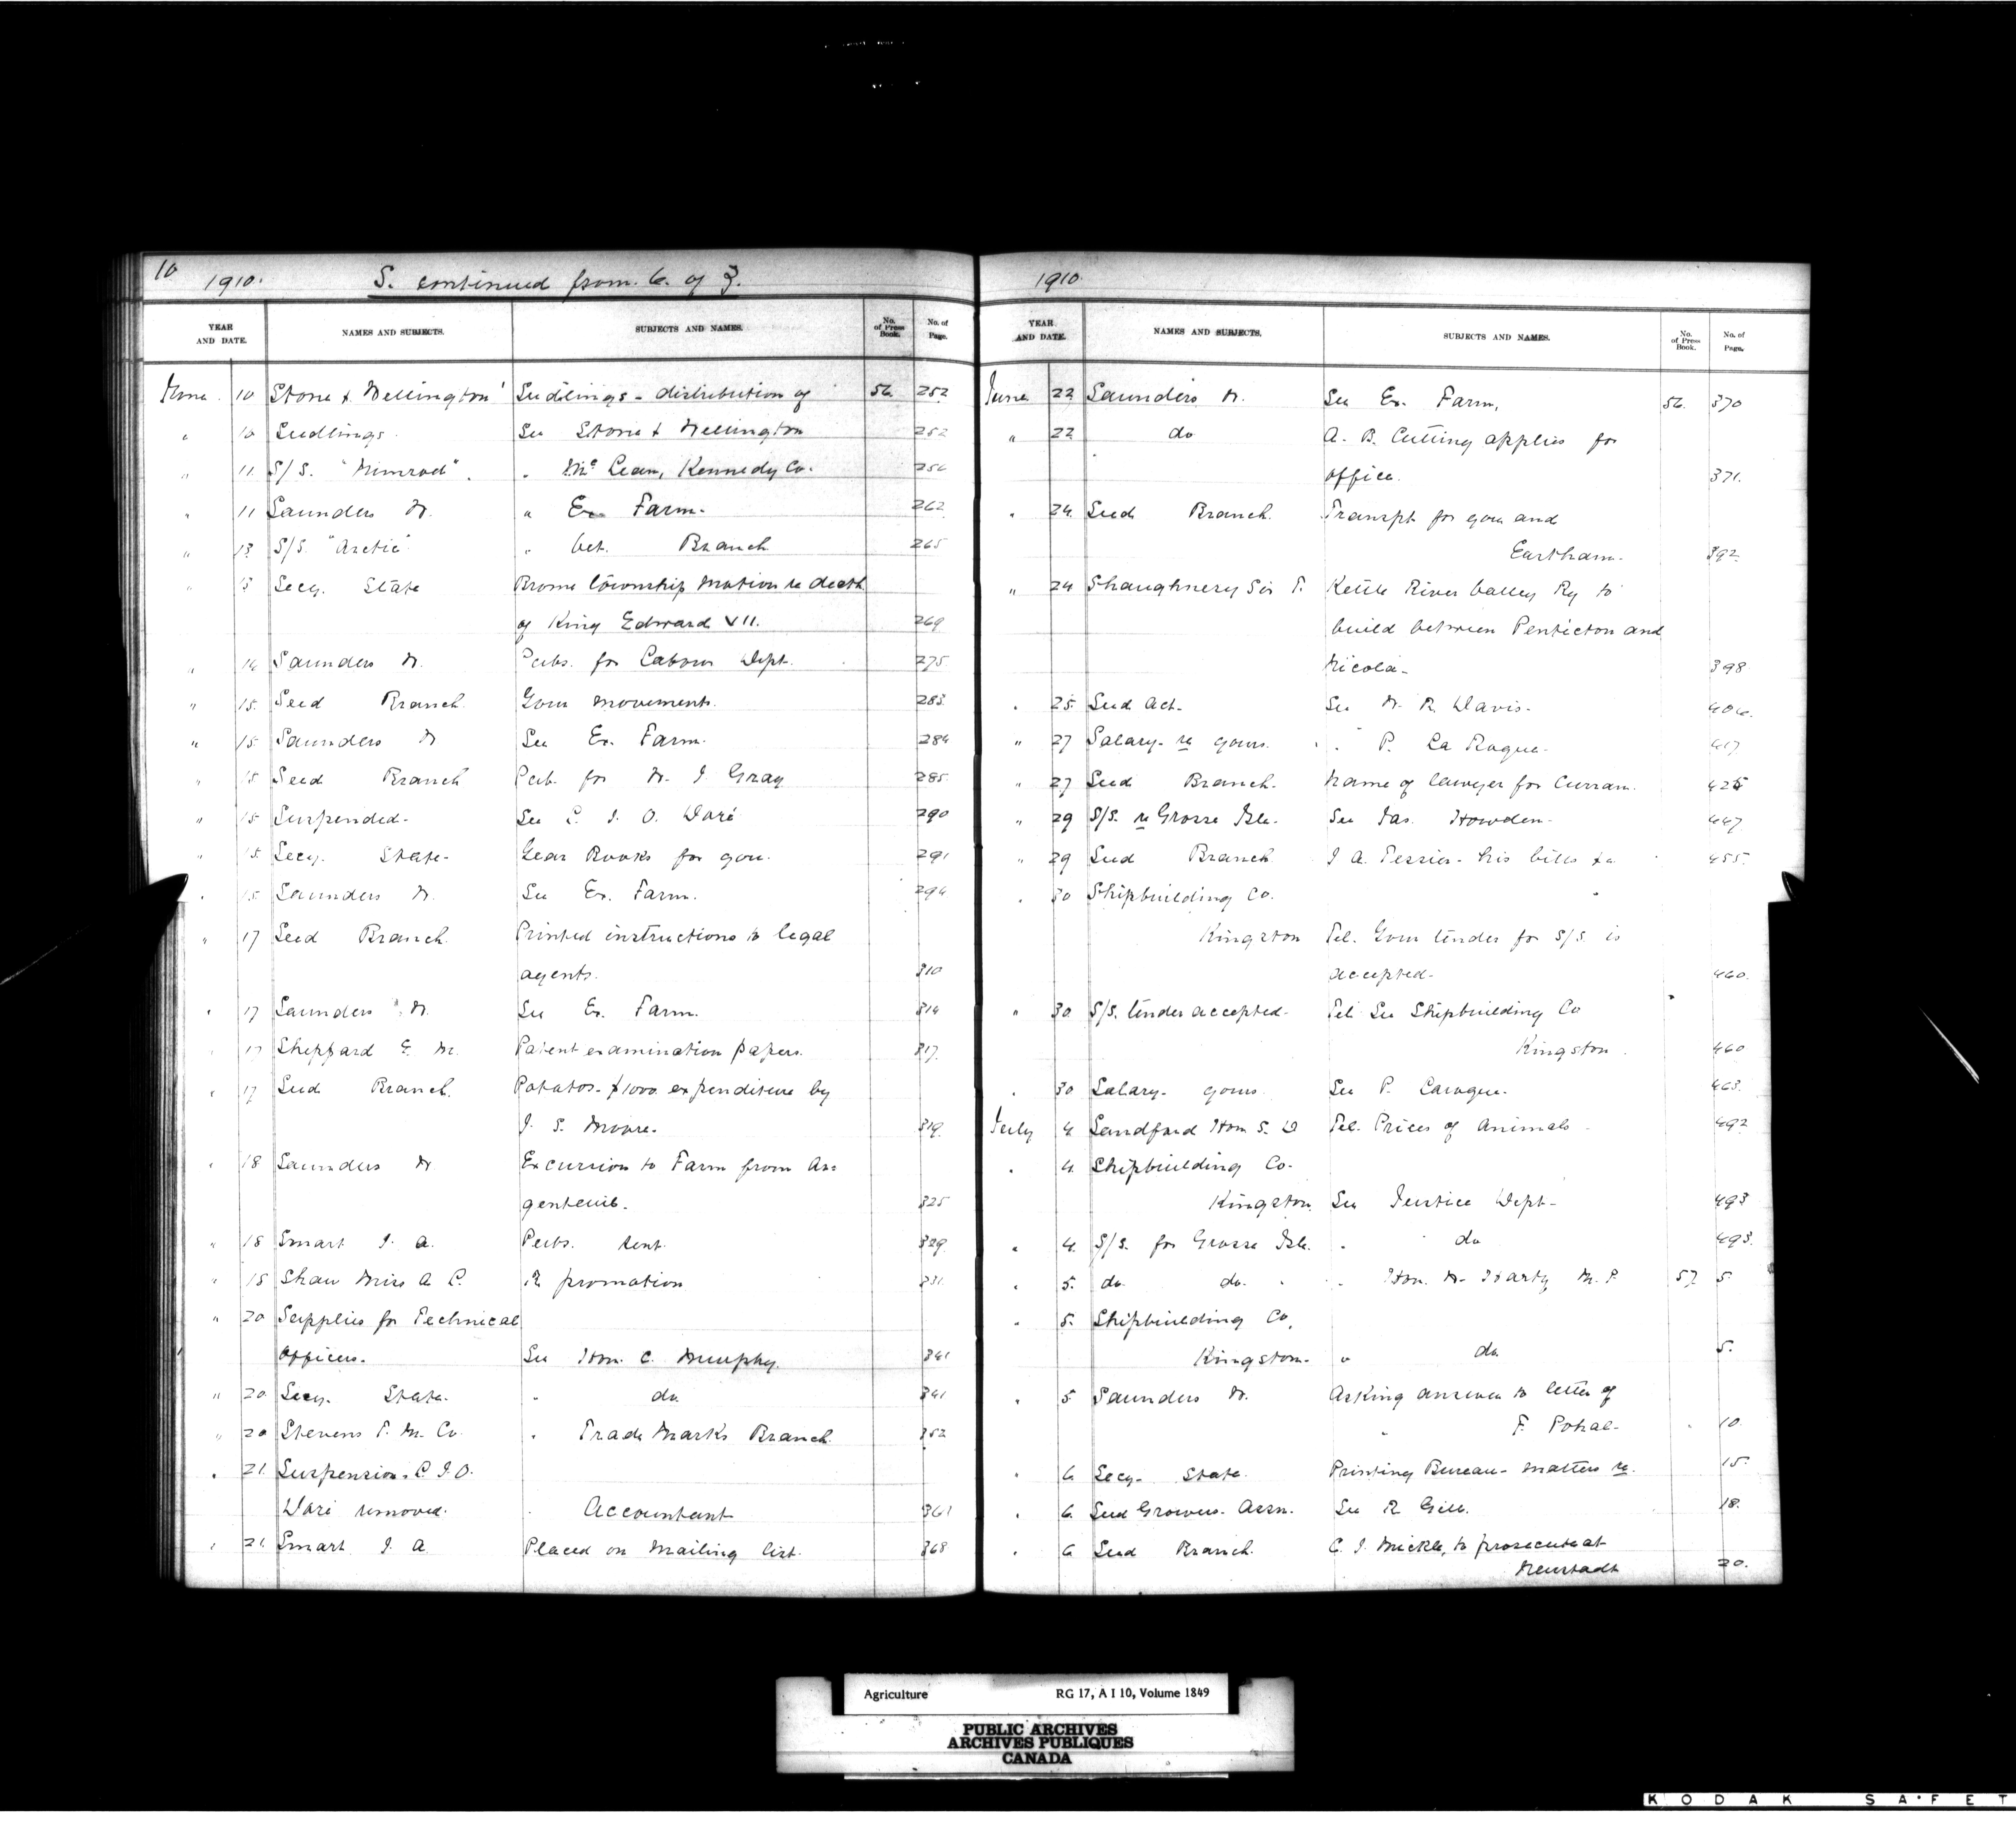 10 1910. S. continued from. 6. of 3.
YEAR AND DATE. NAMES AND SUBJECTS. SUBJECTS AND NAMES. No. of Press Book. No. of Page.
June 10 Stone & Wellington Seedlings - distribution of 56. 252
" 10 Seedlings. See Stone & Wellington 252
" 11 S/S. "Nimrod". " McLean, Kennedy Co. 256
" 11 Saunders W. " Ex Farm. 262
" 13 S/S. "Arctic" " Vet. Branch 265
" 13 Secy. State Brome township Motion re death
of King Edward VII. 269
" 14 Saunders W. Pubs. for Labour Dept. 275
" 15. Seed Branch. Your movements. 283.
" 15. Saunders W See Ex. Farm. 284
" 15 Seed Branch Pub. for W. J Gray 285.
" 15 Suspended. See C. J. O. Doré 290
" 15. Secy. State. Year Books for you. 291
" 15. Saunders W. See Ex. Farm. 294
" 17 Seed Branch. Printed instructions to legal
agents. 310
" 17 Saunders W. See Ex. Farm. 314
" 17 Sheppard E. M. Patent examination papers. 317.
" 17 Seed Branch. Potatos. $1000. expenditure by
J. S. Moore. 319.
" 18 Saunders W. Excursion to Farm from Ar=
genteuil. 325
" 18 Smart J. A. Pubs. sent. 329
" 18 Shaw Miss A C. Re promotion 331.
" 20 Supplies for Technical
Officers. See Hon. C. Murphy. 341
" 20 Secy. State. " do. 341
" 20 Stevens T. M. Co. " Trade Marks Branch. 352
" 21. Suspension. C. J. O.
Doré removed. " Accountant 361
" 21. Smart J. A Placed on Mailing list. 368
1910.
YEAR AND DATE. NAMES AND SUBJECTS. SUBJECTS AND NAMES. No. of Press Book. No. of Page.
June 22 Saunders W. See Ex. Farm. 56. 370
" 22 do A. B. Cutting applies for
office. 371.
" 24. Seed Branch. Transpt for you and
Eartham. 392
" 24 Shaughnery Sir T. Kettle River Valley Ry to
build between Penticton and
Nicola. 398
" 25. Seed Act. See W. R. Davis. 404.
" 27 Salary - re yours. " P. La Rogue. 417
" 27 Seed Branch. Name of lawyer for Curran. 425
" 29 S/S. re Grosse Isle. See Jas. Howden. 447
" 29 Seed Branch. J A. Tessier - his bills &c 455.
" 30 Shipbuilding Co.
Kingston Tel. Your tender for S/S. is
accepted. 460.
" 30 S/S. tender accepted. Tel. See Shipbuilding Co
Kingston. 460
" 30 Salary - yours. See P. Larogue. 463.
July 4. Sandford Hon S. D Tel. Prices of Animals. 492
" 4. Shipbuilding Co.
Kingston. See Justice Dept. 493
" 4. S/S. for Grosse Isle. " do 493.
" 5. do. do. " Hon. W. Harty M. P. 57 5.
" 5. Shipbuilding Co.
Kingston. " do. 5.
" 5 Saunders W. Asking answer to letter of
F. Pokal. 10.
" 6. Secy. State. Printing Bureau - matters re. 15.
" 6. Seed Growers. Assn. See R Gill. 18.
" 6 Seed Branch. C. J. Mickle, to prosecute at
Neustadt 20.
Agriculture RG 17, A I 10, Volume 1849
PUBLIC ARCHIVES
ARCHIVES PUBLIQUES
CANADA
KODAK SAFET